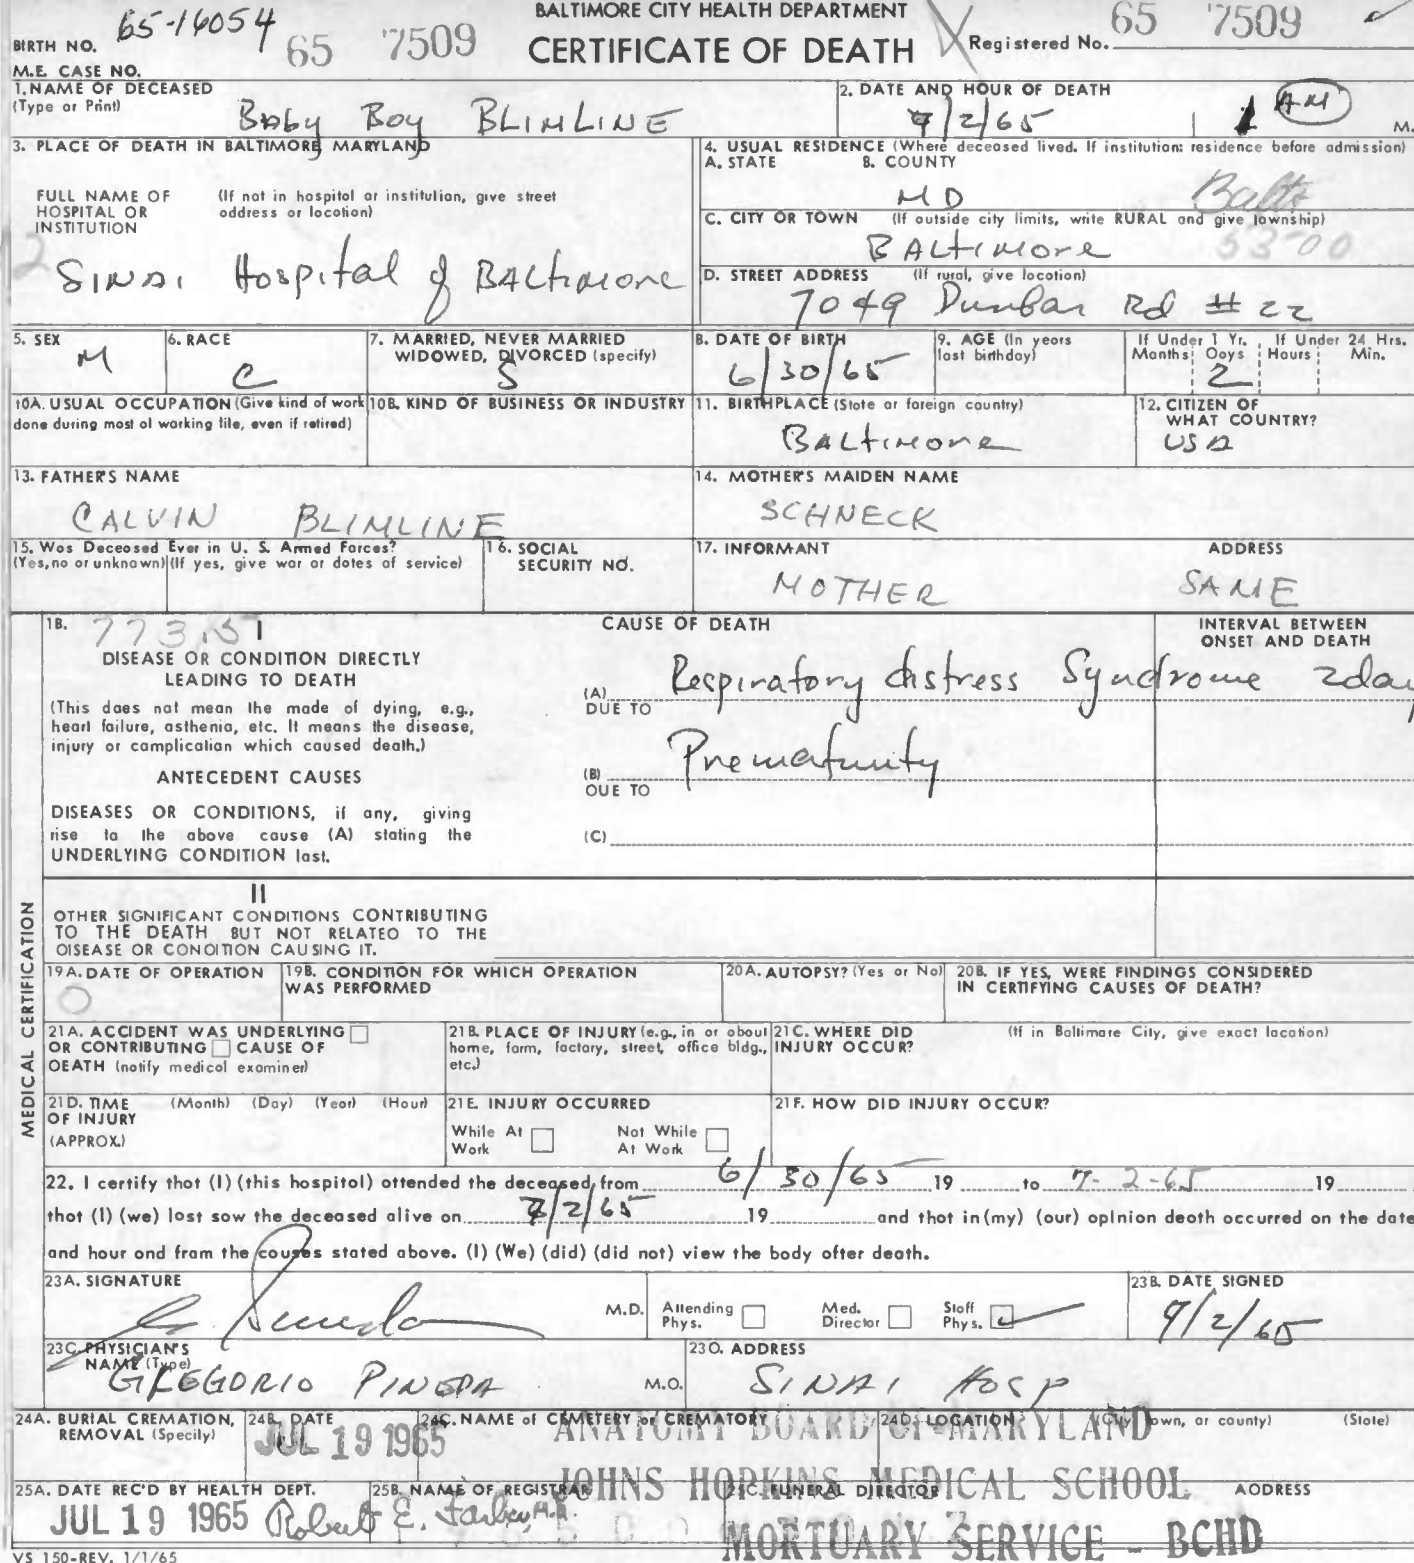 BALTIMORE CITY HEALTH DEPARTMENT
CERTIFICATE OF DEATH
BIRTH NO. 65-16054 65 7509
Registered No. 65 7509
M.E. CASE NO.
1. NAME OF DECEASED
(Type or Print) Baby Boy BLIMLINE
2. DATE AND HOUR OF DEATH
7/2/65 1 AM M.
3. PLACE OF DEATH IN BALTIMORE, MARYLAND
FULL NAME OF HOSPITAL OR INSTITUTION
(If not in hospital or institution, give street address or location)
SINAI Hospital of BALtimore
4. USUAL RESIDENCE (Where deceased lived. If institution: residence before admission)
A. STATE B. COUNTY
MD Balto
C. CITY OR TOWN (If outside city limits, write RURAL and give township)
BALtimore 53-00
D. STREET ADDRESS (If rural, give location)
7049 Dunbar Rd # 22
5. SEX
M
6. RACE
C
7. MARRIED, NEVER MARRIED
WIDOWED, DIVORCED (specify)
S
8. DATE OF BIRTH
6/30/65
9. AGE (In years
last birthday)
If Under 1 Yr. If Under 24 Hrs.
Months Days Hours Min.
2
10A. USUAL OCCUPATION (Give kind of work
done during most of working life, even if retired)
10B. KIND OF BUSINESS OR INDUSTRY
11. BIRTHPLACE (State or foreign country)
BALtimore
12. CITIZEN OF
WHAT COUNTRY?
USA
13. FATHER'S NAME
CALVIN BLIMLINE
14. MOTHER'S MAIDEN NAME
SCHNECK
15. Was Deceased Ever in U. S. Armed Forces?
(Yes, no or unknown) (If yes, give war or dates of service)
16. SOCIAL
SECURITY NO.
17. INFORMANT ADDRESS
MOTHER SAME
MEDICAL CERTIFICATION
18. 773.5 I
DISEASE OR CONDITION DIRECTLY
LEADING TO DEATH
(This does not mean the mode of dying, e.g.,
heart failure, asthenia, etc. It means the disease,
injury or complication which caused death.)
ANTECEDENT CAUSES
DISEASES OR CONDITIONS, if any, giving
rise to the above cause (A) stating the
UNDERLYING CONDITION last.
CAUSE OF DEATH
INTERVAL BETWEEN
ONSET AND DEATH
(A) Respiratory distress Syndrome 2day
DUE TO
(B) Prematurity
DUE TO
(C)
II
OTHER SIGNIFICANT CONDITIONS CONTRIBUTING
TO THE DEATH BUT NOT RELATED TO THE
DISEASE OR CONDITION CAUSING IT.
19A. DATE OF OPERATION
0
19B. CONDITION FOR WHICH OPERATION
WAS PERFORMED
20A. AUTOPSY? (Yes or No)
20B. IF YES, WERE FINDINGS CONSIDERED
IN CERTIFYING CAUSES OF DEATH?
21A. ACCIDENT WAS UNDERLYING
OR CONTRIBUTING CAUSE OF
DEATH (notify medical examiner)
21B. PLACE OF INJURY (e.g., in or about
home, farm, factory, street, office bldg.,
etc.)
21C. WHERE DID
INJURY OCCUR?
(If in Baltimore City, give exact location)
21D. TIME (Month) (Day) (Year) (Hour)
OF INJURY
(APPROX.)
21E. INJURY OCCURRED
While At Work Not While At Work
21F. HOW DID INJURY OCCUR?
22. I certify that (I) (this hospital) attended the deceased from 6/30/65 19 to 7-2-65 19
that (I) (we) last saw the deceased alive on 7/2/65 19 and that in (my) (our) opinion death occurred on the date
and hour and from the causes stated above. (I) (We) (did) (did not) view the body after death.
23A. SIGNATURE
M.D.
Attending Phys. Med. Director Staff Phys.
23B. DATE SIGNED
7/2/65
23C. PHYSICIAN'S
NAME (Type)
GREGORIO PINEDA M.D.
23D. ADDRESS
SINAI HOSP
24A. BURIAL CREMATION,
REMOVAL (Specify)
24B. DATE
JUL 19 1965
24C. NAME of CEMETERY or CREMATORY
24D. LOCATION (City, town, or county) (State)
ANATOMY BOARD OF MARYLAND
JOHNS HOPKINS MEDICAL SCHOOL
25A. DATE REC'D BY HEALTH DEPT.
JUL 19 1965
25B. NAME OF REGISTRAR
Robert E. Farber, M.D.
25C. FUNERAL DIRECTOR ADDRESS
MORTUARY SERVICE - BCHD
VS 150-REV. 1/1/65